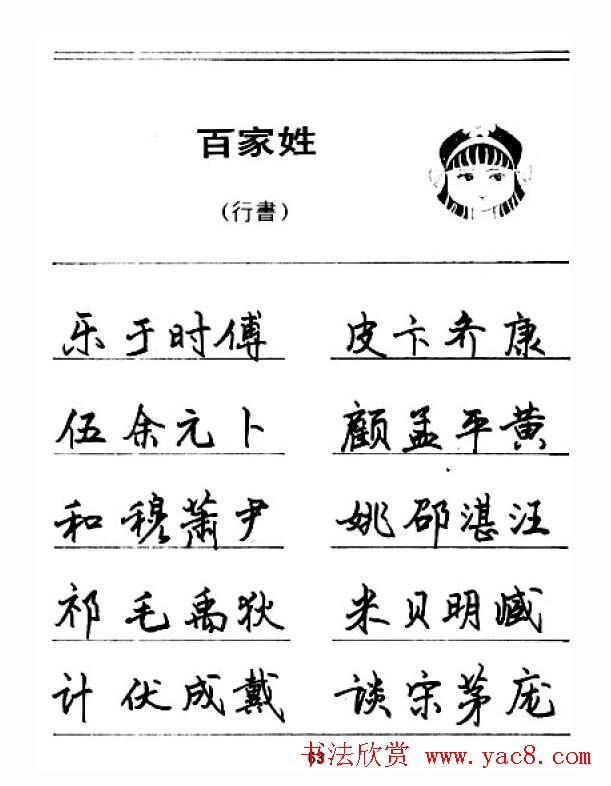 百家姓
(行書)
乐于时傅 皮卞齐康
伍余元卜 顧孟平黄
和穆萧尹 姚邵湛汪
祁毛禹狄 米贝明臧
计伏成戴 谈宋茅庞
63
书法欣赏 www.yac8.com